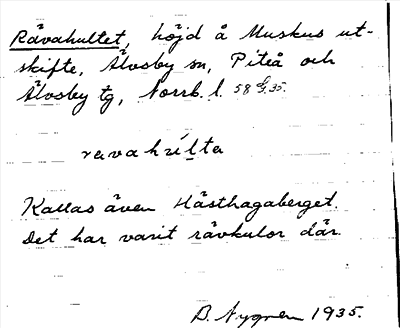 Rävahultet, höjd å Muskus ut-
skifte, Älvsby sn, Piteå och
Älvsby tg, Norrb. l. 58 35.
ravahúlta
Kallas även Hästhagaberget.
Det har varit rävkulor där.
B. Nygren 1935.